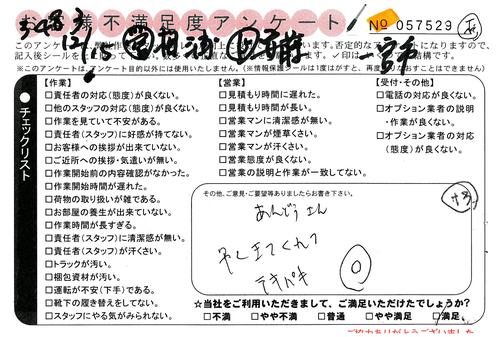 お客様不満足度アンケート
No 057529
12/15
※このアンケートは、アンケート目的以外には使用いたしません。(※情報保護シールは1度はがすと、再度貼りなおすことはできません)
チェックリスト
【作業】
□責任者の対応(態度)が良くない。
□他のスタッフの対応(態度)が良くない。
□作業を見ていて不安がある。
□責任者(スタッフ)に好感が持てない。
□お客様への挨拶が出来ていない。
□ご近所への挨拶・気遣いが無い。
□作業開始前の内容確認がなかった。
□作業開始時間が遅れた。
□荷物の取り扱いが雑である。
□お部屋の養生が出来ていない。
□作業時間が長すぎる。
□責任者(スタッフ)に清潔感が無い。
□責任者(スタッフ)が汗くさい。
□トラックが汚い。
□梱包資材が汚い。
□運転が不安(下手)である。
□靴下の履き替えをしてない。
□スタッフにやる気がみられない。
【営業】
□見積もり時間に遅れた。
□見積もり時間が長い。
□営業マンに清潔感が無い。
□営業マンが煙草くさい。
□営業マンが汗くさい。
□営業態度が良くない。
□営業の説明と作業が一致してない。
【受付・その他】
□電話の対応が良くない。
□オプション業者の説明
・作業が良くない。
□オプション業者の対応
(態度)が良くない。
その他、ご意見・ご要望等ありましたらお書き下さい。
あんどうさん
早く来てくれて
テキパキ
★当社をご利用いただきまして、ご満足いただけたでしょうか?
□不満 □やや不満 □普通 □やや満足 □満足
ご協力ありがとうございました